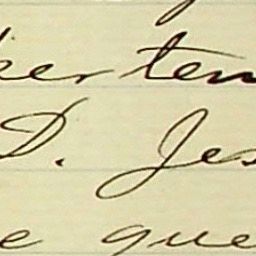 ker tem
D. Jes
e que